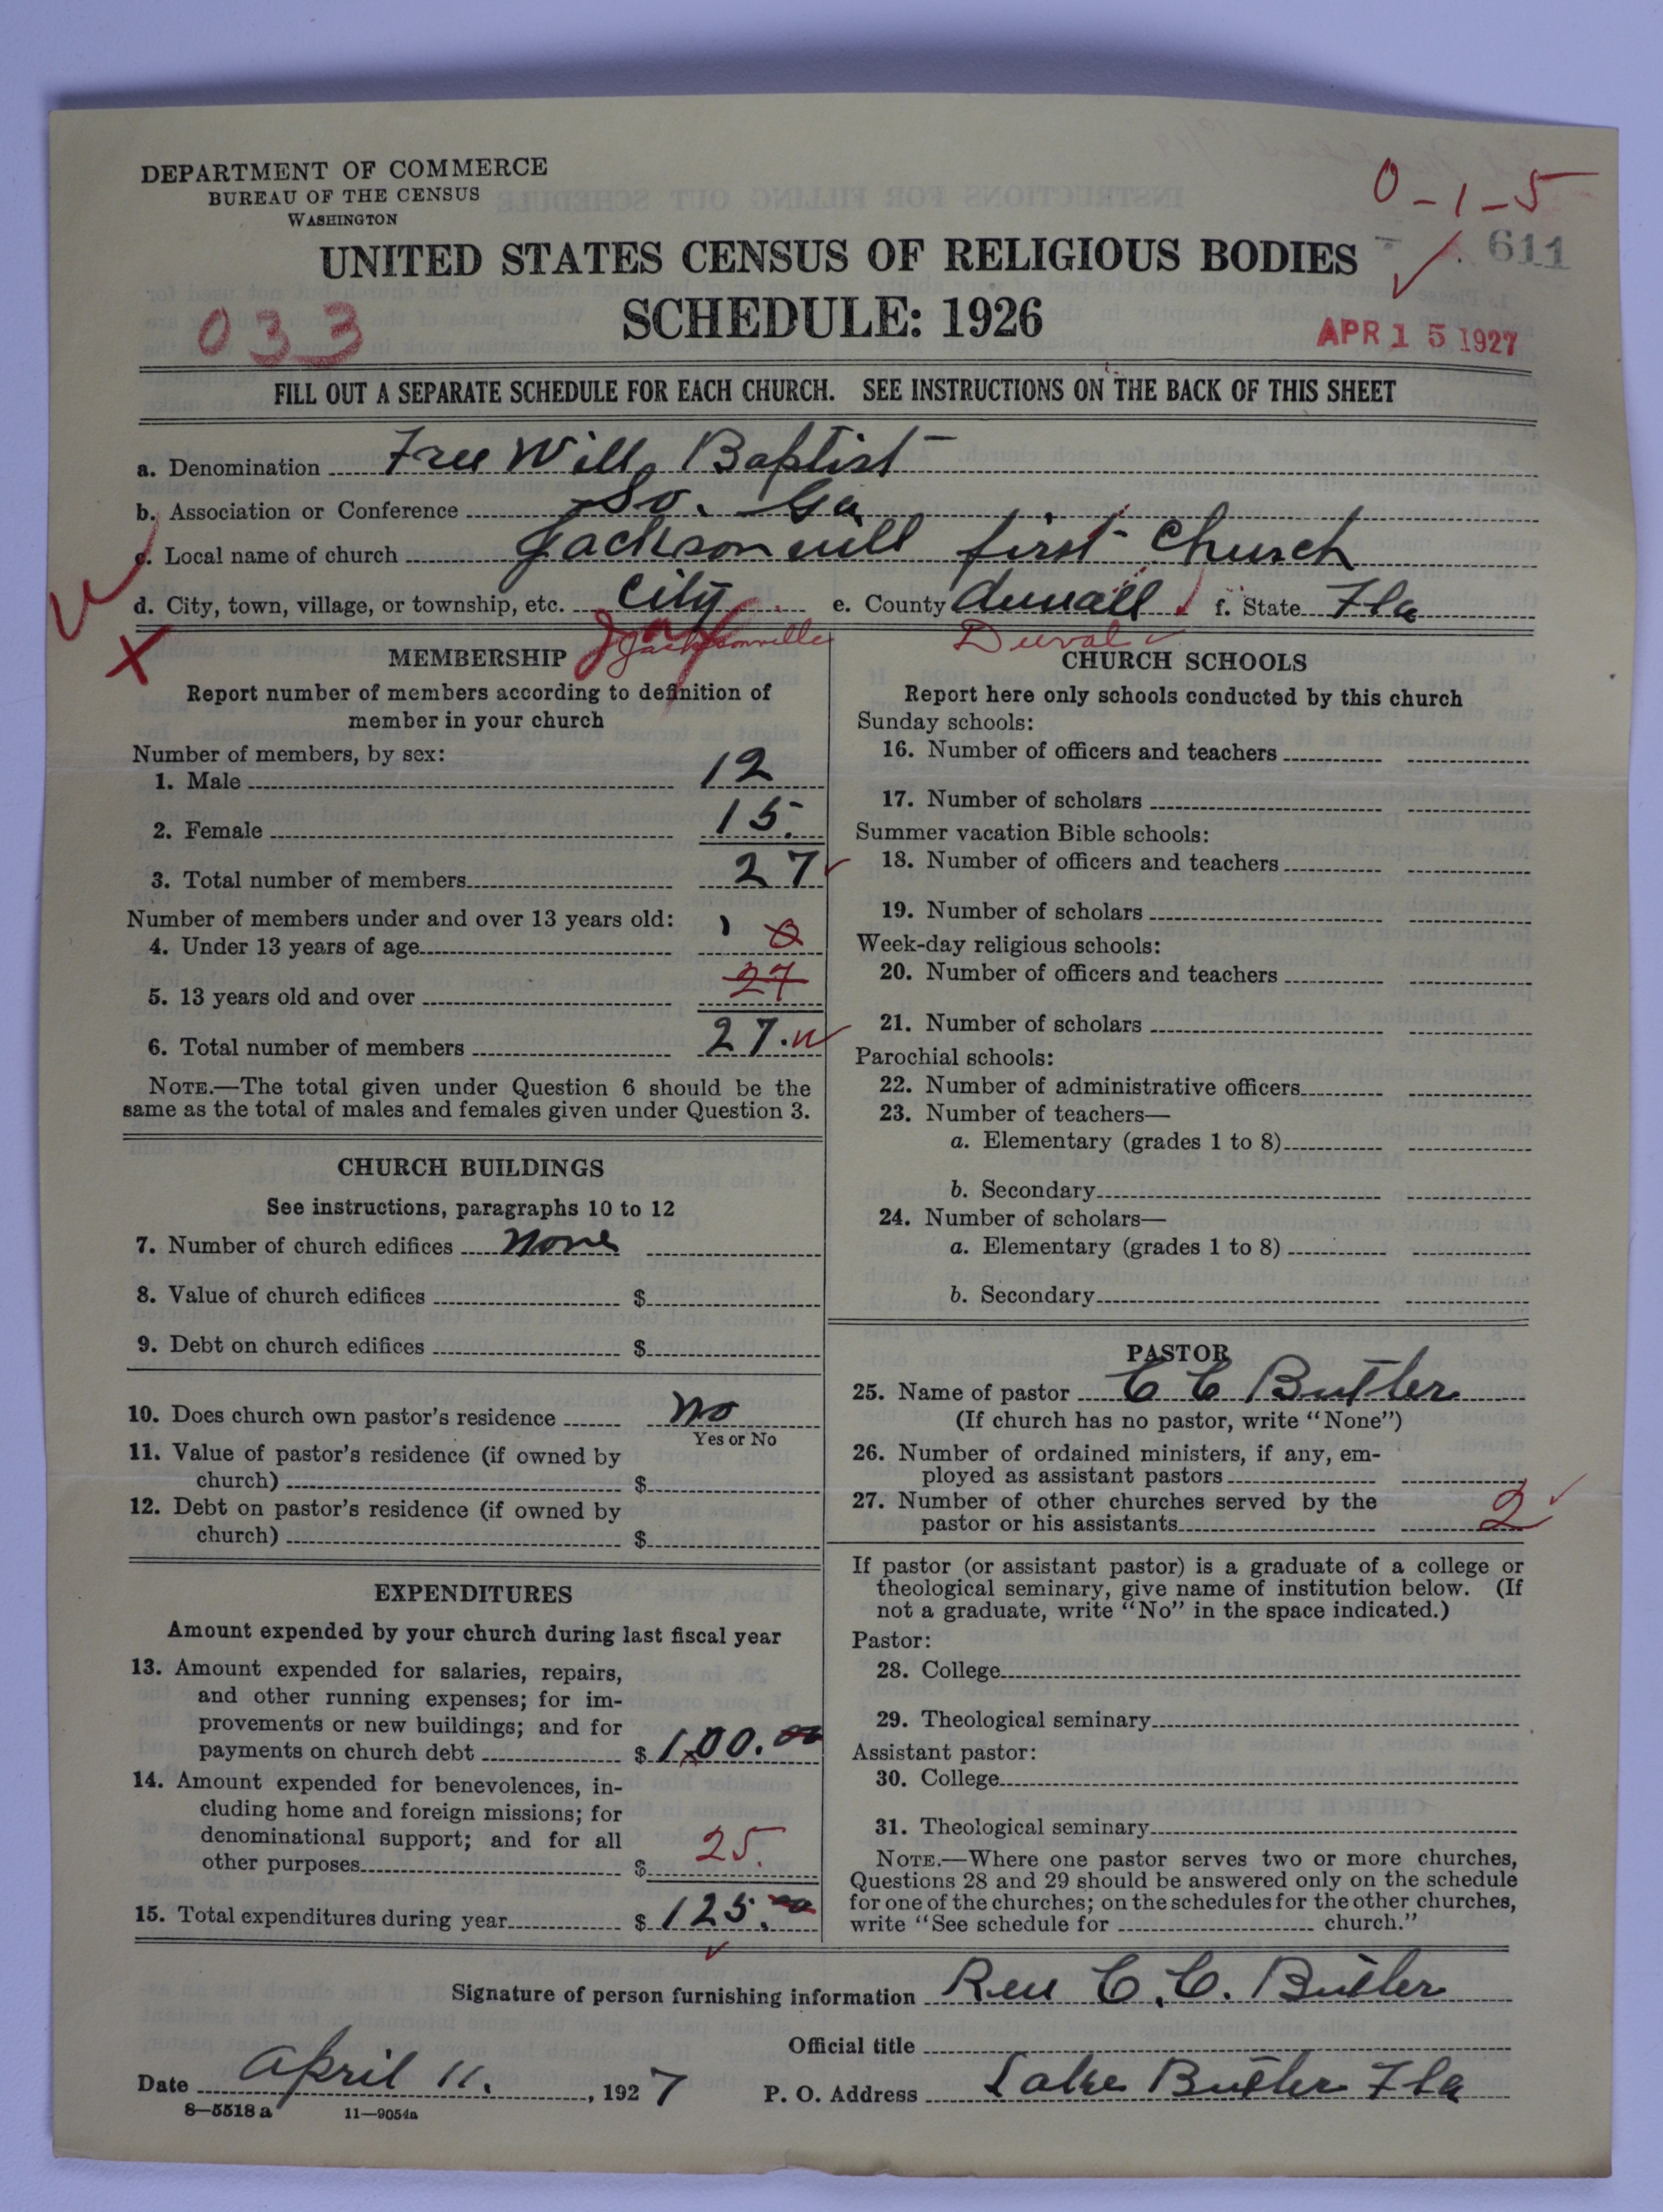 DEPARTMENT OF COMMERCE
BUREAU OF THE CENSUS
WASHINGTON
0-1-5
611
UNITED STATES CENSUS OF RELIGIOUS BODIES
SCHEDULE: 1926
033
APR 15 1927
FILL OUT A SEPARATE SCHEDULE FOR EACH CHURCH. SEE INSTRUCTIONS ON THE BACK OF THIS SHEET
a. Denomination Free Will Baptist
b. Association or Conference So. Ga
c. Local name of church Jacksonvill first Church
d. City, town, village, or township, etc. City e. County duvall f. State Fla
Jacksonville Duval
MEMBERSHIP
Report number of members according to definition of
member in your church
Number of members, by sex:
1. Male 12
2. Female 15.
3. Total number of members 27
Number of members under and over 13 years old:
4. Under 13 years of age 0
5. 13 years old and over 27
6. Total number of members 27.
NOTE.—The total given under Question 6 should be the
same as the total of males and females given under Question 3.
CHURCH BUILDINGS
See instructions, paragraphs 10 to 12
7. Number of church edifices none
8. Value of church edifices $
9. Debt on church edifices $
10. Does church own pastor's residence no
Yes or No
11. Value of pastor's residence (if owned by
church) $
12. Debt on pastor's residence (if owned by
church) $
EXPENDITURES
Amount expended by your church during last fiscal year
13. Amount expended for salaries, repairs,
and other running expenses; for im-
provements or new buildings; and for
payments on church debt $ 100.00
14. Amount expended for benevolences, in-
cluding home and foreign missions; for
denominational support; and for all
other purposes $ 25.
15. Total expenditures during year $ 125.00
CHURCH SCHOOLS
Report here only schools conducted by this church
Sunday schools:
16. Number of officers and teachers
17. Number of scholars
Summer vacation Bible schools:
18. Number of officers and teachers
19. Number of scholars
Week-day religious schools:
20. Number of officers and teachers
21. Number of scholars
Parochial schools:
22. Number of administrative officers
23. Number of teachers—
a. Elementary (grades 1 to 8)
b. Secondary
24. Number of scholars—
a. Elementary (grades 1 to 8)
b. Secondary
PASTOR
25. Name of pastor C C Butler
(If church has no pastor, write "None")
26. Number of ordained ministers, if any, em-
ployed as assistant pastors
27. Number of other churches served by the
pastor or his assistants 2
If pastor (or assistant pastor) is a graduate of a college or
theological seminary, give name of institution below. (If
not a graduate, write "No" in the space indicated.)
Pastor:
28. College
29. Theological seminary
Assistant pastor:
30. College
31. Theological seminary
NOTE.—Where one pastor serves two or more churches,
Questions 28 and 29 should be answered only on the schedule
for one of the churches; on the schedules for the other churches,
write "See schedule for church."
Signature of person furnishing information Rev C. C. Butler
Official title
Date April 11., 1927 P. O. Address Lake Butler Fla
8—5518 a 11—9054a